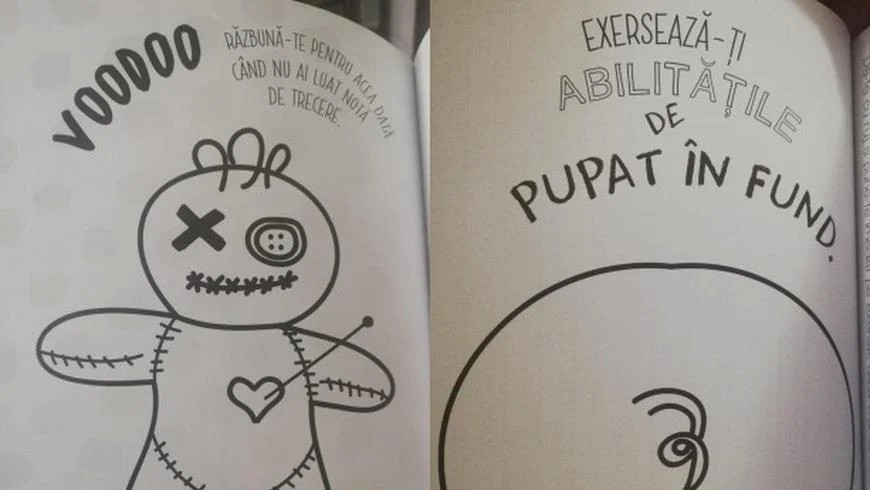 VOODOO
RĂZBUNĂ-TE PENTRU ACEA DATĂ
CÂND NU AI LUAT NOTĂ
DE TRECERE.
EXERSEAZĂ-ȚI
ABILITĂȚILE
DE
PUPAT ÎN FUND.